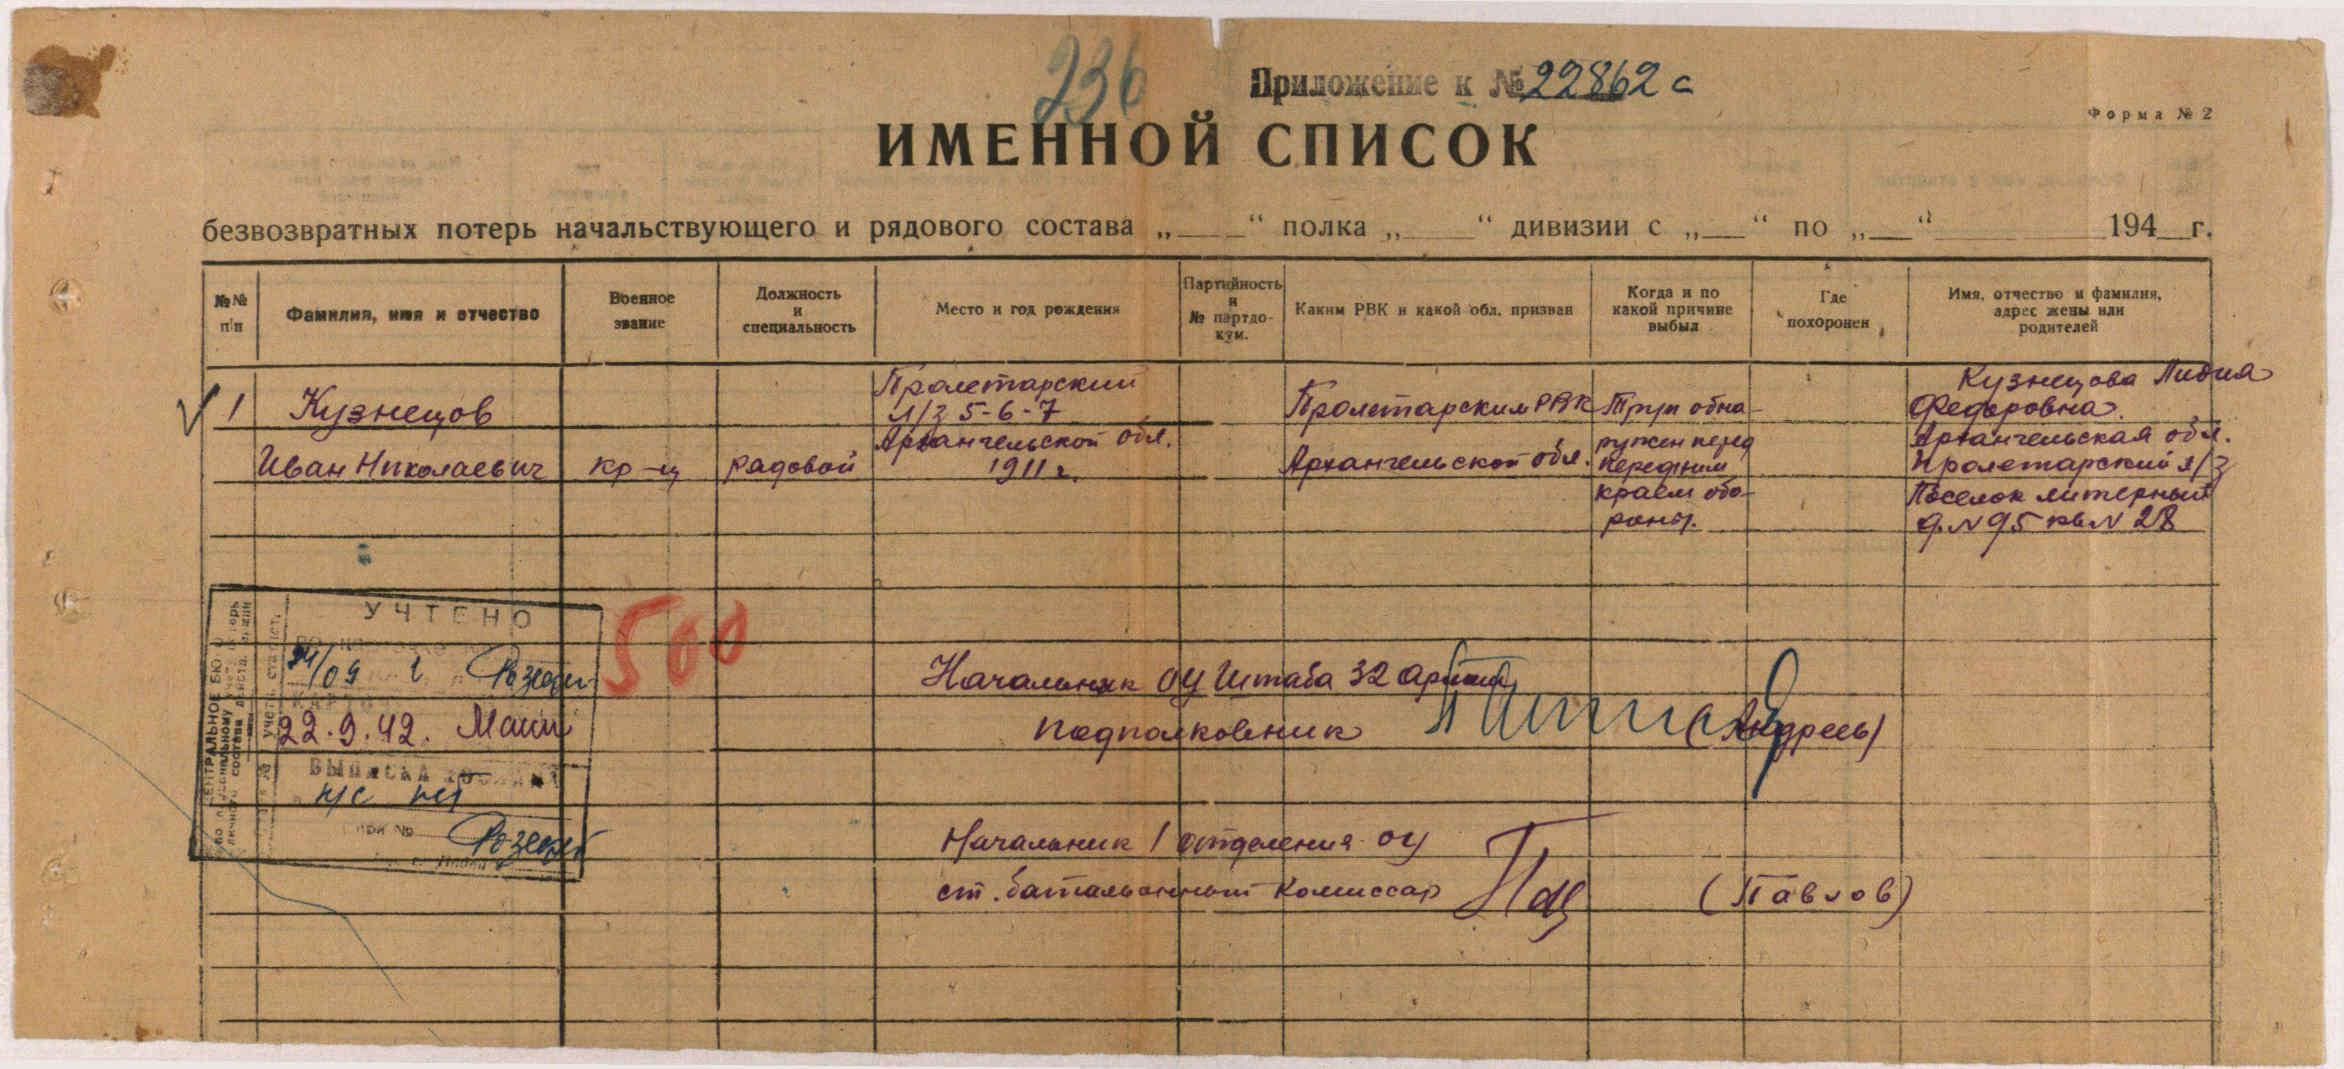 236
Приложение к № 22862 с
Форма № 2
ИМЕННОЙ СПИСОК
безвозвратных потерь начальствующего и рядового состава „ “ полка „ “ дивизии с „ “ по „ “ 194 г.
№№ п/п
Фамилия, имя и отчество
Военное звание
Должность и специальность
Место и год рождения
Партийность и № партдокум.
Каким РВК и какой обл. призван
Когда и по какой причине выбыл
Где похоронен
Имя, отчество и фамилия, адрес жены или родителей
1
Кузнецов
Иван Николаевич
кр-ц
рядовой
Пролетарский
л/з 5-6-7
Архангельской обл.
1911 г.
Пролетарским РВК
Архангельской обл.
Труп обна-
ружен перед
передним
краем обо-
роны.
Кузнецова Лидия
Федоровна.
Архангельская обл.
Пролетарский л/з
Поселок литерный
д. N 95 кв N 28
УЧТЕНО
09
22.9.42.
ВЫПИСКА
500
Начальник ОУ Штаба 32 армии
подполковник
(Андреев)
Начальник 1 отделения ОУ
ст. батальонный комиссар
(Павлов)
ЦЕНТРАЛЬНОЕ БЮРО
по персональному учету потерь
личного состава действ. армии